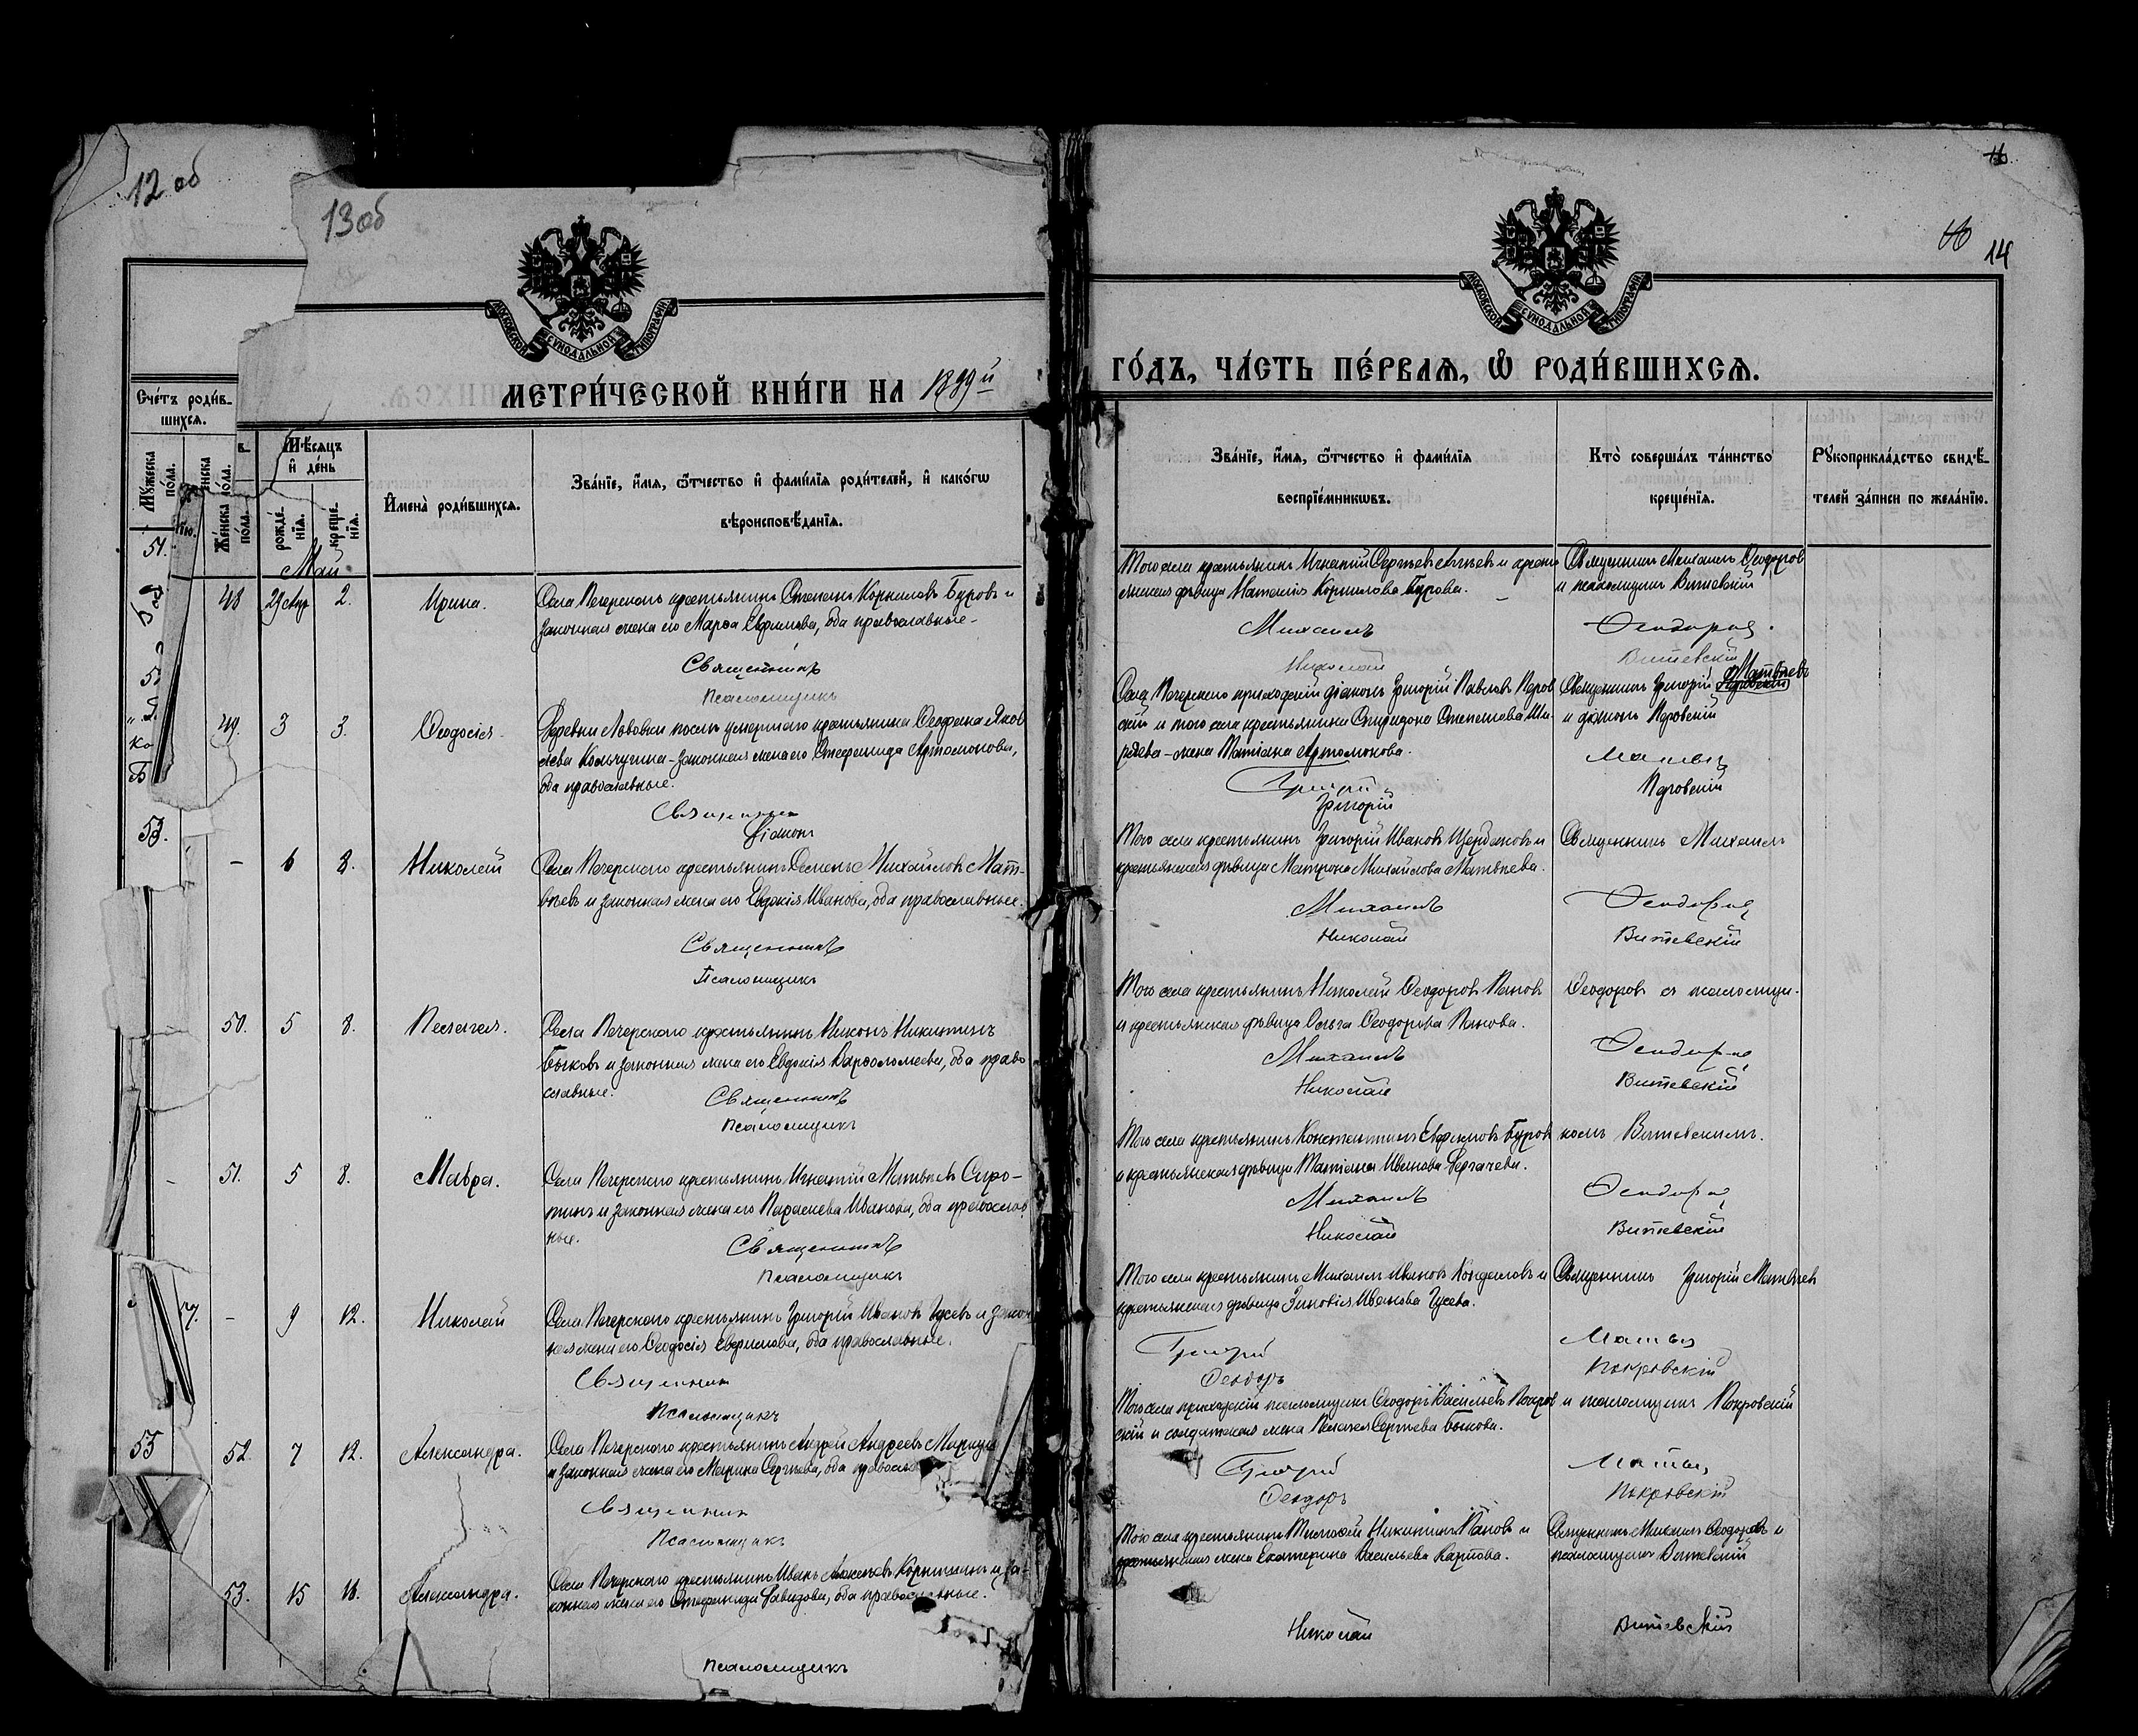 12 об
13 об
14
МОСКОВСКОЙ СѴНОДАЛЬНОЙ ТИПОГРАФІИ
МОСКОВСКОЙ СѴНОДАЛЬНОЙ ТИПОГРАФІИ
МЕТРИ́ЧЕСКОЙ КНИ́ГИ НА 1899й
ГО́ДЪ, ЧА́СТЬ ПЕ́РВАѦ, Ѡ РОДИ́ВШИХСѦ.
Сче́тъ роди́в-
шихсѧ.
Мꙋ́жеска по́ла.
Же́нска по́ла.
Мѣ́сѧцъ и҆ де́нь
рожде́-нїѧ.
креще́-нїѧ.
И҆мена̀ роди́вшихсѧ.
Зва́нїе, и҆́мѧ, ѻ҆́тчество и҆ фами́лїѧ роди́телей, и҆ како́гѡ
вѣроисповѣ́данїѧ.
Зва́нїе, и҆́мѧ, ѻ҆́тчество и҆ фами́лїѧ
воспрїе́мникѡвъ.
Кто̀ соверша́лъ та́инство
креще́нїѧ.
Рꙋкоприкла́дство свидѣ́-
телей за́писи по жела́нїю.
Май
51.
48 29 Апр 2. Ирина.
Села Печерскаго крестьянинъ Стефанъ Корниловъ Буровъ и
законная жена его Марѳа Евфимова, оба православные.
Священникъ
Псаломщикъ
Того села крестьянинъ Игнатій Сергѣевъ и крестьян
ская дѣвица Наталія Корнилова Бурова.
Михаилъ
Николай
Священникъ Михаилъ Ѳеодоров
и псаломщикъ Витевскій
Ѳеодоров
Витевскій
49. 3 3. Ѳеодосія
Деревни Львовки послѣ умершаго крестьянина Ѳеофана Яков
лева Кольчугина - законная жена его Стефанида Артамонова,
оба православные.
Священникъ
Діаконъ
Села Печерскаго приходскій діаконъ Григорій Павловъ Перов
скій и того села крестьянина Спиридона Степанова Ши-
ряева - жена Татіана Артамонова.
Григорій
Григорій
Священникъ Григорій Матвѣевъ
и діаконъ Перовскій
Матвѣев
Перовскій
53.
- 6 8. Николай
Села Печерскаго крестьянинъ Михайловъ Мат-
вѣевъ и законная жена его Евдокія Иванова, оба православные.
Священникъ
Псаломщикъ
Того села крестьянинъ Григорій Ивановъ Щербаковъ и
крестьянская дѣвица Матрона Михайлова Матвѣева.
Михаилъ
Николай
Священникъ Михаилъ
Ѳеодоров
Витевскій
50. 5 8. Пелагея.
Села Печерскаго крестьянинъ Никонъ Никитинъ
Быковъ и законная жена его Евдокія Варѳоломеева, оба право
славные.
Священникъ
Псаломщикъ
Того села крестьянинъ Николай Ѳеодоровъ Пановъ
и крестьянская дѣвица Ольга Ѳеодорова Панова.
Михаилъ
Николай
Ѳеодоровъ съ псаломщи-
Ѳеодоров
Витевскій
- 51. 5 8. Мавра.
Села Печерскаго крестьянинъ Игнатій Матвѣевъ Сиро-
тинъ и законная жена его Параскева Иванова, оба православ
ные.
Священникъ
Псаломщикъ
Того села крестьянинъ Константинъ Евфимовъ Буров
и крестьянская дѣвица Татіана Иванова
Михаилъ
Николай
комъ Витевскимъ.
Ѳеодоров
Витевскій
- 9 12. Николай
Села Печерскаго крестьянинъ Григорій Ивановъ Гусевъ и закон
ная жена его Ѳеодосія Евфимова, оба православные.
Священник
Псаломщикъ
Того села крестьянинъ Михаилъ Ивановъ и
крестьянская дѣвица Зиновія Иванова Гусева.
Григорій
Ѳеодоръ
Священникъ Григорій Матвѣев
Матвѣев
Покровскій
55
52. 7 12. Александра.
Села Печерскаго крестьянинъ Андрей Андреевъ
и законная жена его Марина Сергѣева, оба православ
Священник
Псаломщикъ
Того села приходскій псаломщикъ Ѳеодоръ Васильевъ Покров
скій и солдатская жена Пелагея Сергѣева Быкова.
Григорій
Ѳеодоръ
и псаломщикъ Покровскій
Матвѣев
Покровскій
53. 15 16. Александра.
Села Печерскаго крестьянинъ Иванъ и за-
конная жена его Стефанида Давидова, оба православные.
Псаломщикъ
Того села крестьянинъ Тимоѳей Никитинъ Пановъ и
крестьянская жена Екатерина Васильева Карпова.
Николай
Священникъ Михаилъ Ѳеодоровъ и
псаломщикъ Витевскій
Витевскій